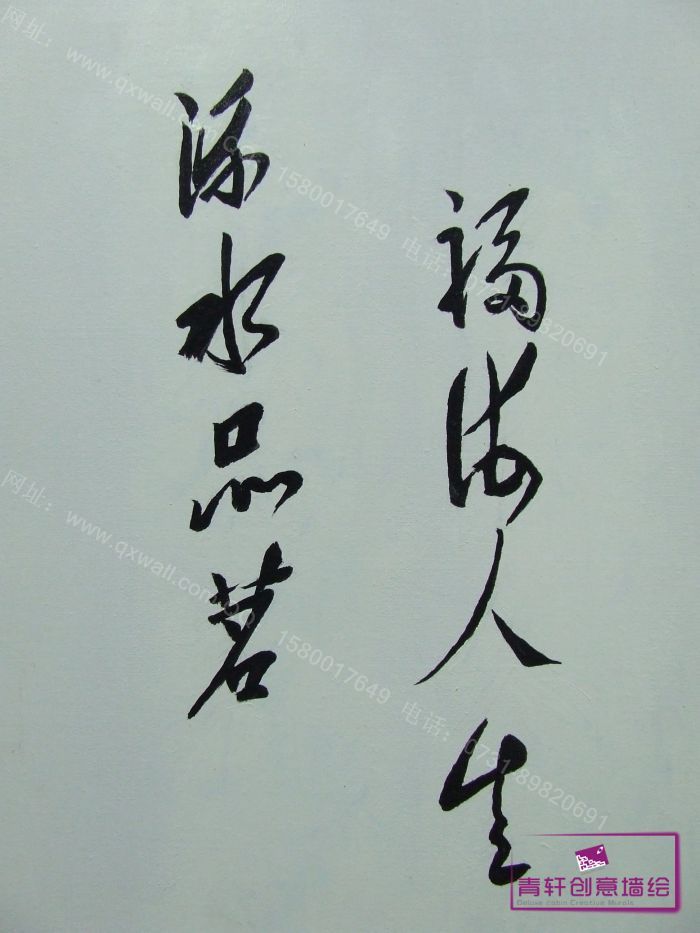 福海人生
水品茗
网址：www.qxwall.com 1580017649 电话：0731-89820691
网址：www.qxwall.com 1580017649 电话：0731-89820691
青轩创意墙绘
Deluxe cabin Creative Murals